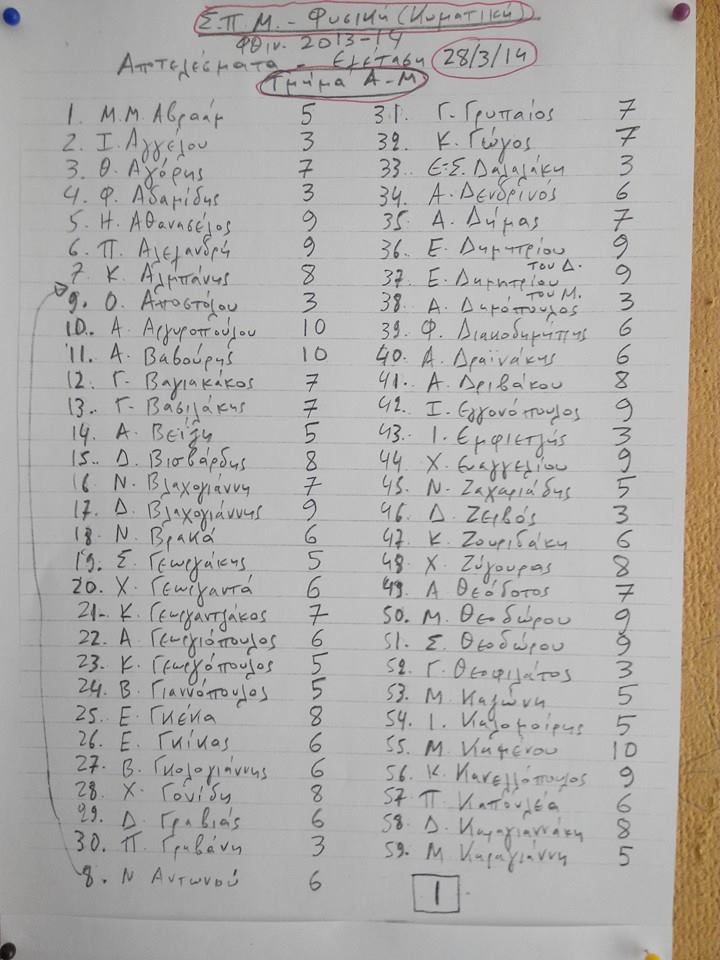 Σ.Π.Μ. - Φυσική (Κυματική)
Φθιν. 2013-14
Αποτελέσματα - Εξέταση 28/3/14
Τμήμα Α-Μ
1. Μ.Μ. Αβραάμ 5
2. Ι. Αγγέλου 3
3. Θ. Αγόρης 7
4. Φ. Αδαμίδης 3
5. Η. Αθανασέλος 9
6. Π. Αλεξανδρή 9
7. Κ. Αλμπάνης 8
9. Ο. Αποστόλου 3
10. Α. Αργυροπούλου 10
11. Α. Βαβούρης 10
12. Γ. Βαγιακάκος 7
13. Γ. Βασιλάκης 7
14. Α. Βεΐζη 5
15. Δ. Βισβάρδης 8
16. Ν. Βλαχογιάννη 7
17. Δ. Βλαχογιάννης 9
18. Ν. Βρακά 6
19. Σ. Γεωργάκης 5
20. Χ. Γεωργαντά 6
21. Κ. Γεωργαντζάκος 7
22. Α. Γεωργιόπουλος 6
23. Κ. Γεωργόπουλος 5
24. Β. Γιαννόπουλος 5
25. Ε. Γκέκα 8
26. Ε. Γκίκας 6
27. Β. Γκολογιάννης 6
28. Χ. Γονίδη 8
29. Δ. Γραβιάς 6
30. Π. Γραβάνη 3
8. Ν Αντωνού 6
31. Γ. Γρυπαίος 7
32. Κ. Γώγος 7
33. Ε.-Σ. Δαλαλάκη 3
34. Α. Δενδρινός 6
35. Α. Δήμας 7
36. Ε. Δημητρίου 9
του Δ.
37. Ε. Δημητρίου 9
του Μ.
38. Α. Δημόπουλος 3
39. Φ. Διακοδημήτρης 6
40. Α. Δραϊνάκης 6
41. Α. Δριβάκου 8
42. Ι. Εγγονόπουλος 9
43. Ι. Εμφιετζής 3
44. Χ. Ευαγγελίου 9
45. Ν. Ζαχαριάδης 5
46. Δ. Ζερβός 3
47. Κ. Ζουριδάκη 6
48. Χ. Ζύγουρας 8
49. Α Θεόδοτος 7
50. Μ. Θεοδώρου 9
51. Σ. Θεοδώρου 9
52. Γ. Θεοφιλάτος 3
53. Μ. Καζώνη 5
54. Ι. Καλομοίρης 5
55. Μ. Καμένου 10
56. Κ. Κανελλόπουλος 9
57. Π. Καπουλέα 6
58. Δ. Καραγιαννάκη 8
59. Μ. Καραγιάννη 5
1